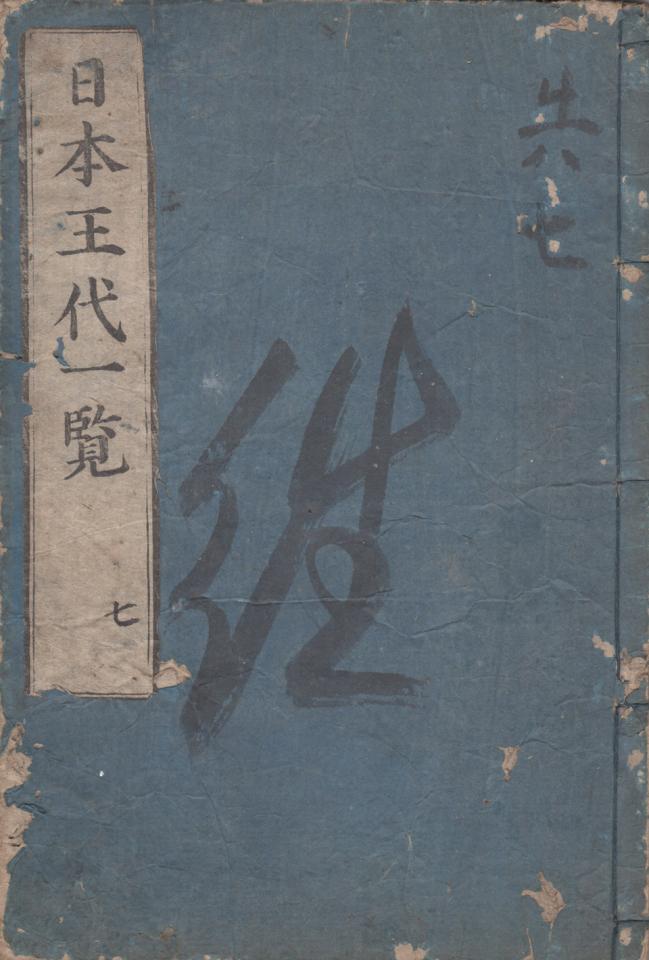 日本王代一覧
七
共六
七